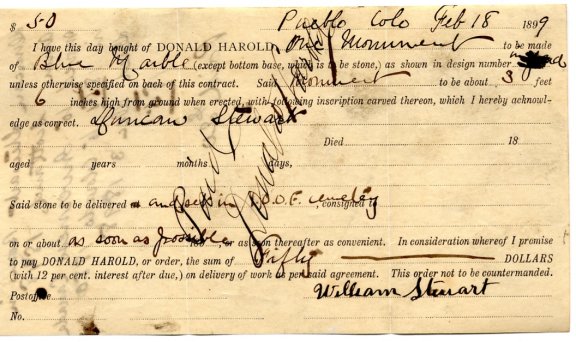 $ 50 Pueblo Colo Feb 18 1899
I have this day bought of DONALD HAROLD, One Monument to be made
of Blue Marble (except bottom base, which is to be stone,) as shown in design number
unless otherwise specified on back of this contract. Said Monument to be about 3 feet
6 inches high from ground when erected, with following inscription carved thereon, which I hereby acknowl-
edge as correct. Duncan Stewart
Died 18
aged years months days,
Said stone to be delivered at and set in I.O.O.F. cemetery consigned to
on or about as soon as possible or as soon thereafter as convenient. In consideration whereof I promise
to pay DONALD HAROLD, or order, the sum of Fifty DOLLARS
(with 12 per cent. interest after due,) on delivery of work as per said agreement. This order not to be countermanded.
Postoffice William Stewart
No.
Paid
Donald Harold